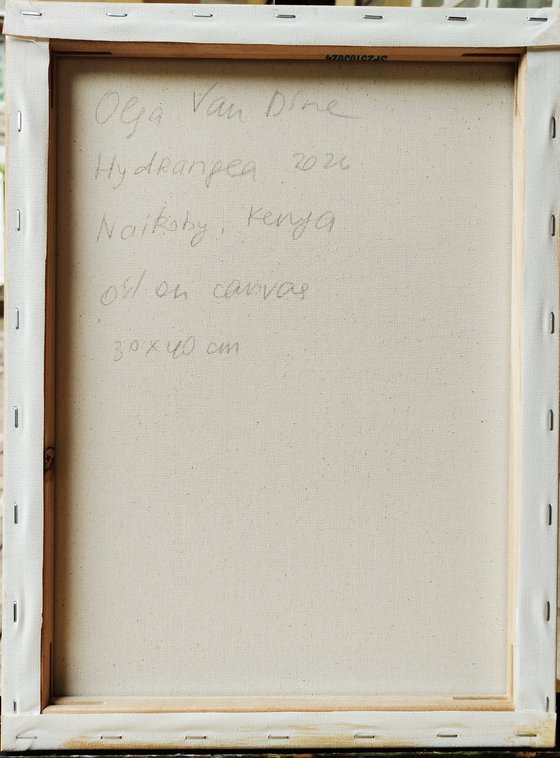 Olga Van Dine
Hydrangea 2026
Nairoby, Kenya
oil on canvas
30x40 cm